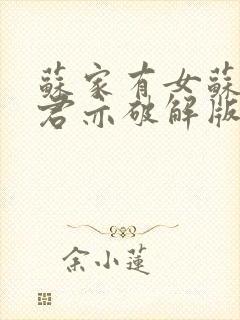 蘇家有女蘇
君亦破解版
余小蓮